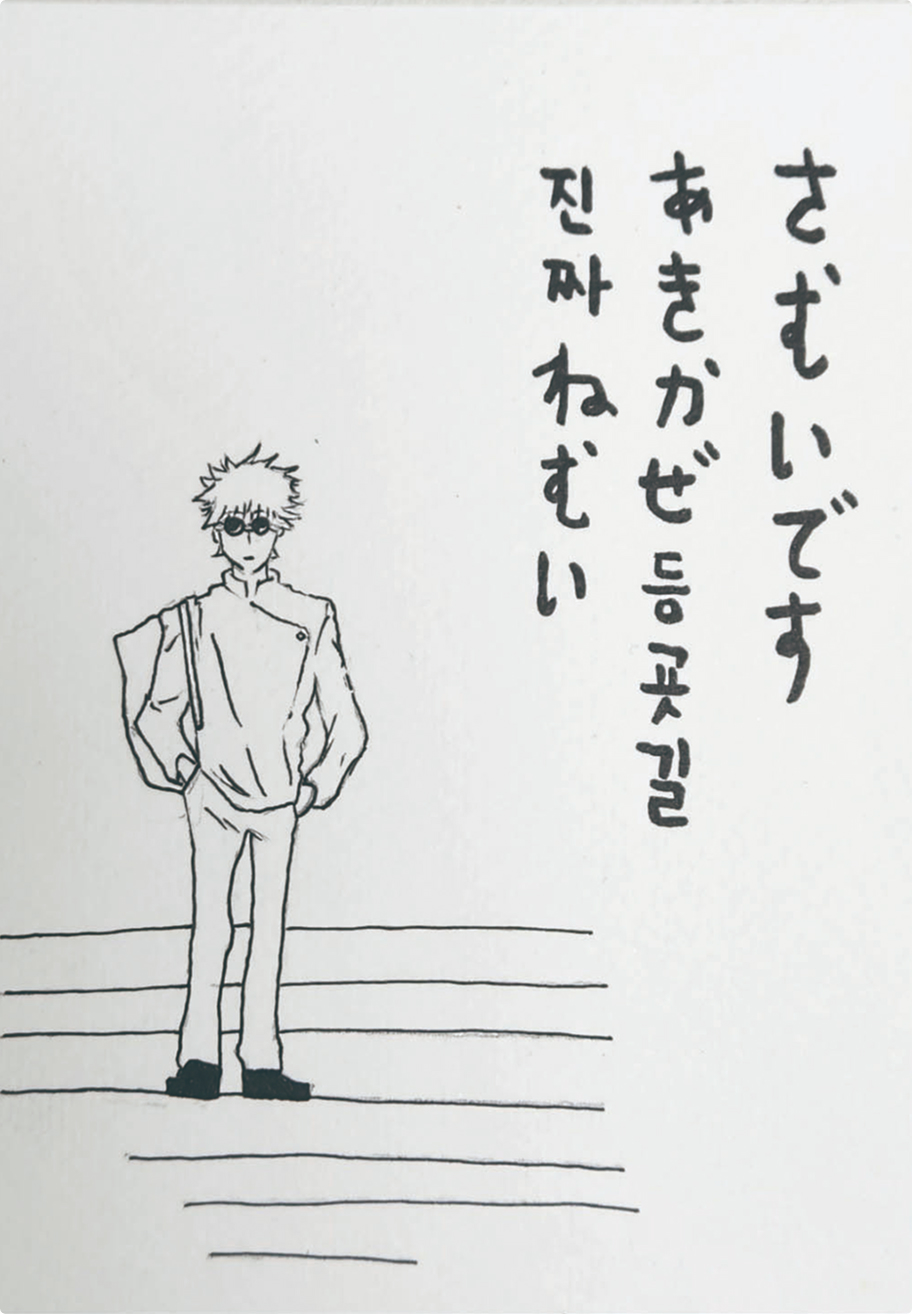 さむいです
あきかぜ등굣길
진짜ねむい